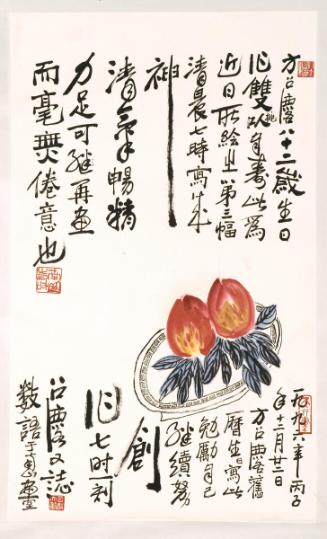 方召麐八十二歲生日
作雙桃以自壽此為
近日所繪生日第三幅
清晨七時寫成
神
清氣暢精
力足可繼再畫
而毫無倦意也
一九九六年丙子
年十二月廿二日
方召麐舊
曆生日寫此
勉勵自己
繼續努
創
作七时一刻
召麐又誌
數語于畫室